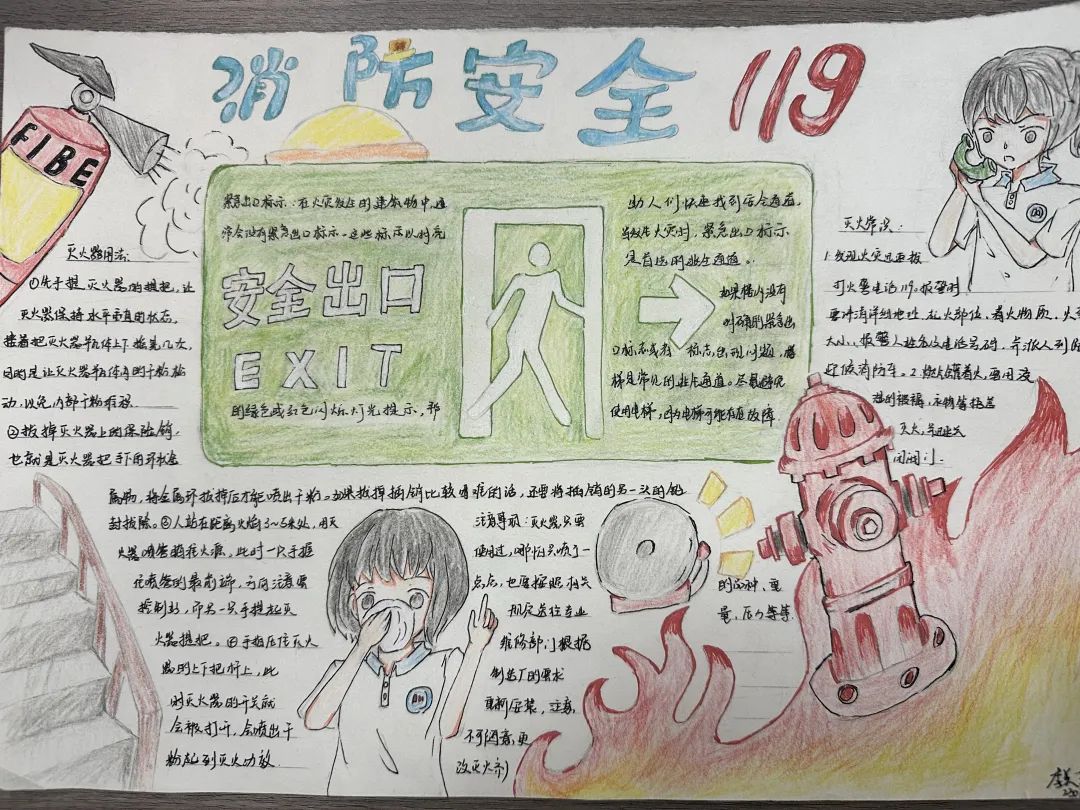 消防安全 119
FIBE
灭火器用法:
①先手提灭火器的提把,让
灭火器保持水平垂直的状态,
接着把灭火器举体上下摇晃几次,
目的是让灭火器举体内的干粉松
动,以免内部干粉
②拔掉灭火器上的保险销,
也就是灭火器把手下用环状金
属物,将金属环拔掉后才能喷出干粉。如果拔掉插销比较困难的话,还要将插销的另一头的铅
封拔除。③人站在距离火焰3~5米处,用灭
火器喷管瞄准火源,此时一只手握
住喷管的最前端,方向注意要
控制好,而另一只手提起灭
火器提把。④手指压住灭火
器的上下把柄上,此
时灭火器的开关就
会被打开,会喷出干
粉起到灭火功效
紧急出口标示:在火灾发生的建筑物中,通
常会设有紧急出口标示,这些标示以明亮
安全出口
EXIT
的绿色或红色闪烁灯光提示,帮
助人们快速找到安全通道。
当发生火灾时,紧急出口标示
是首选的逃生通道。
如果楼内没有
明确的紧急出
口标志或者 标志出现问题,楼
梯是常见的逃生通道。尽量避免
使用电梯,因为电梯可能存在故障
注意事项:灭火器只要
使用过,哪怕只喷了一
点点,也要按照相关
规定送往专业
维修部门根据
制造厂的要求
重新压装,注意
不可随意更
改灭火剂
的品种、重
量、压力等等
灭火常识:
1.发现火灾迅速拨
打火警电话119。报警时
要讲清详细地址、起火部位、着火物质、火
大小、报警人姓名及电话号码,并派人到路
迎候消防车。2.燃气罐着火,要用浸
湿的被褥、衣物等捂盖
灭火,并迅速关
闭阀门。